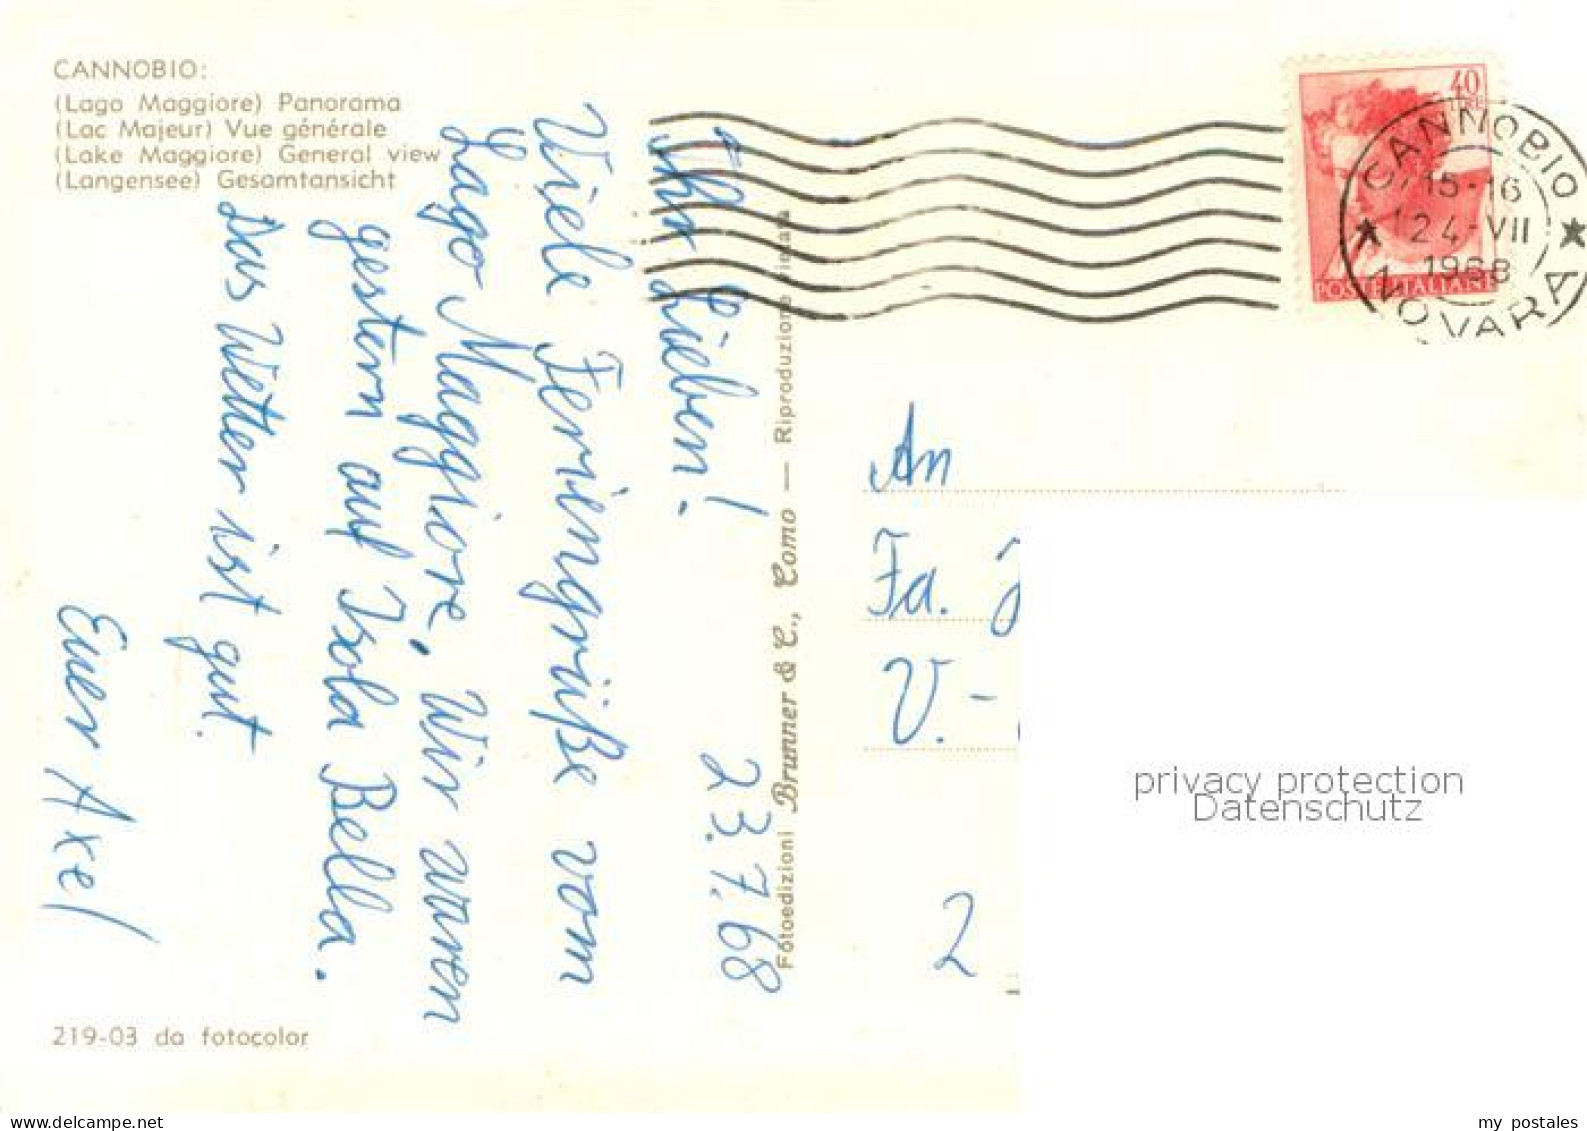 CANNOBIO:
(Lago Maggiore) Panorama
(Lac Majeur) Vue générale
(Lake Maggiore) General view
(Langensee) Gesamtansicht
23.7.68
Ihr Lieben!
Viele Feriengrüße vom
Lago Maggiore. Wir waren
gestern auf Isola Bella.
Das Wetter ist gut.
Euer Axel
219-03 da fotocolor
Fotoedizioni Brunner & C., Como — Riproduzione vietata
40
LIRE
POSTE ITALIANE
CANNOBIO
15-16
24-VII
1968
NOVARA
An
Fa.
V.-
2
privacy protection
Datenschutz
delcampe.net
my postales